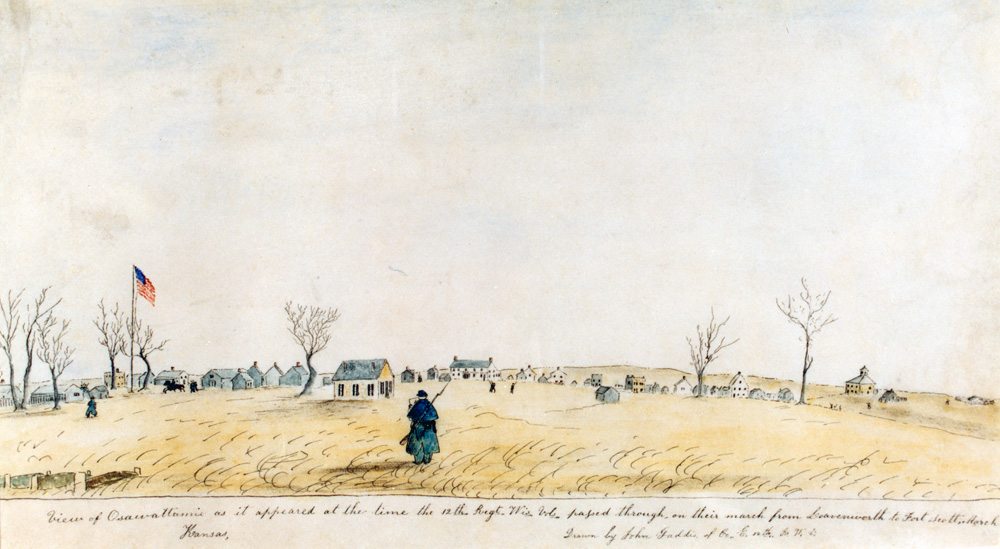 View of Osawattamie as it appeared at the time the 12th Regt. Wis. Vol. passed through, on their march from Leavenworth to Fort Scott, March
Kansas,
Drawn by John Gaddis of Co. E. 12th R. W.